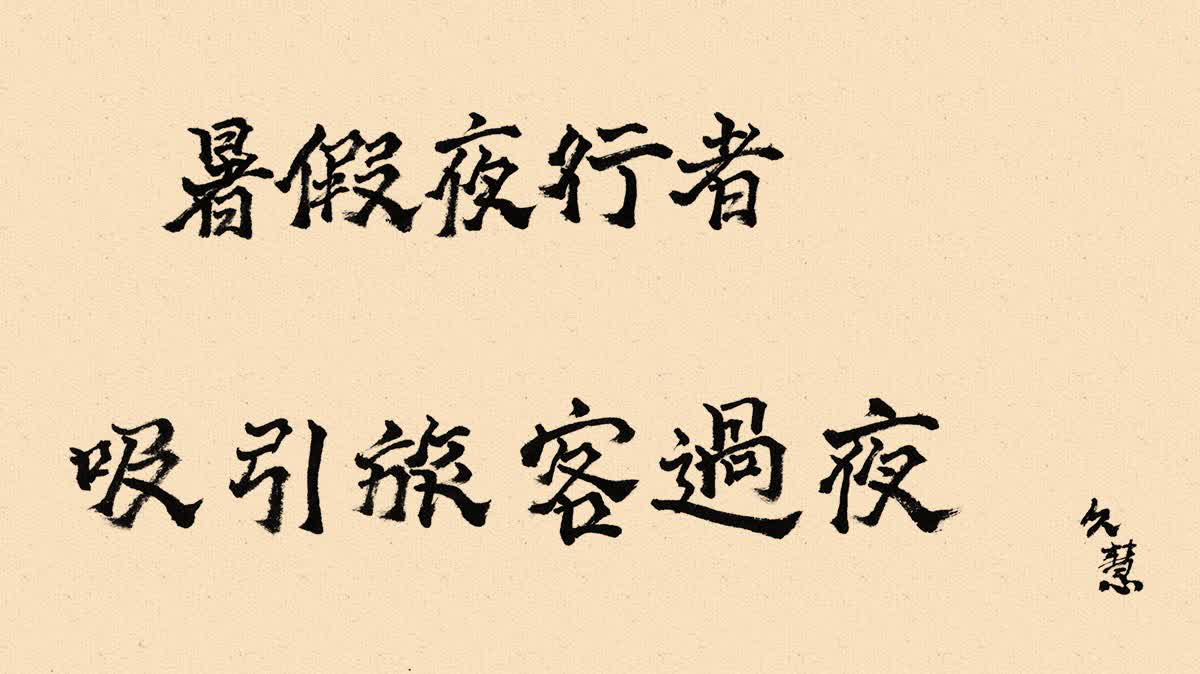 暑假夜行者
吸引旅客過夜
久慧